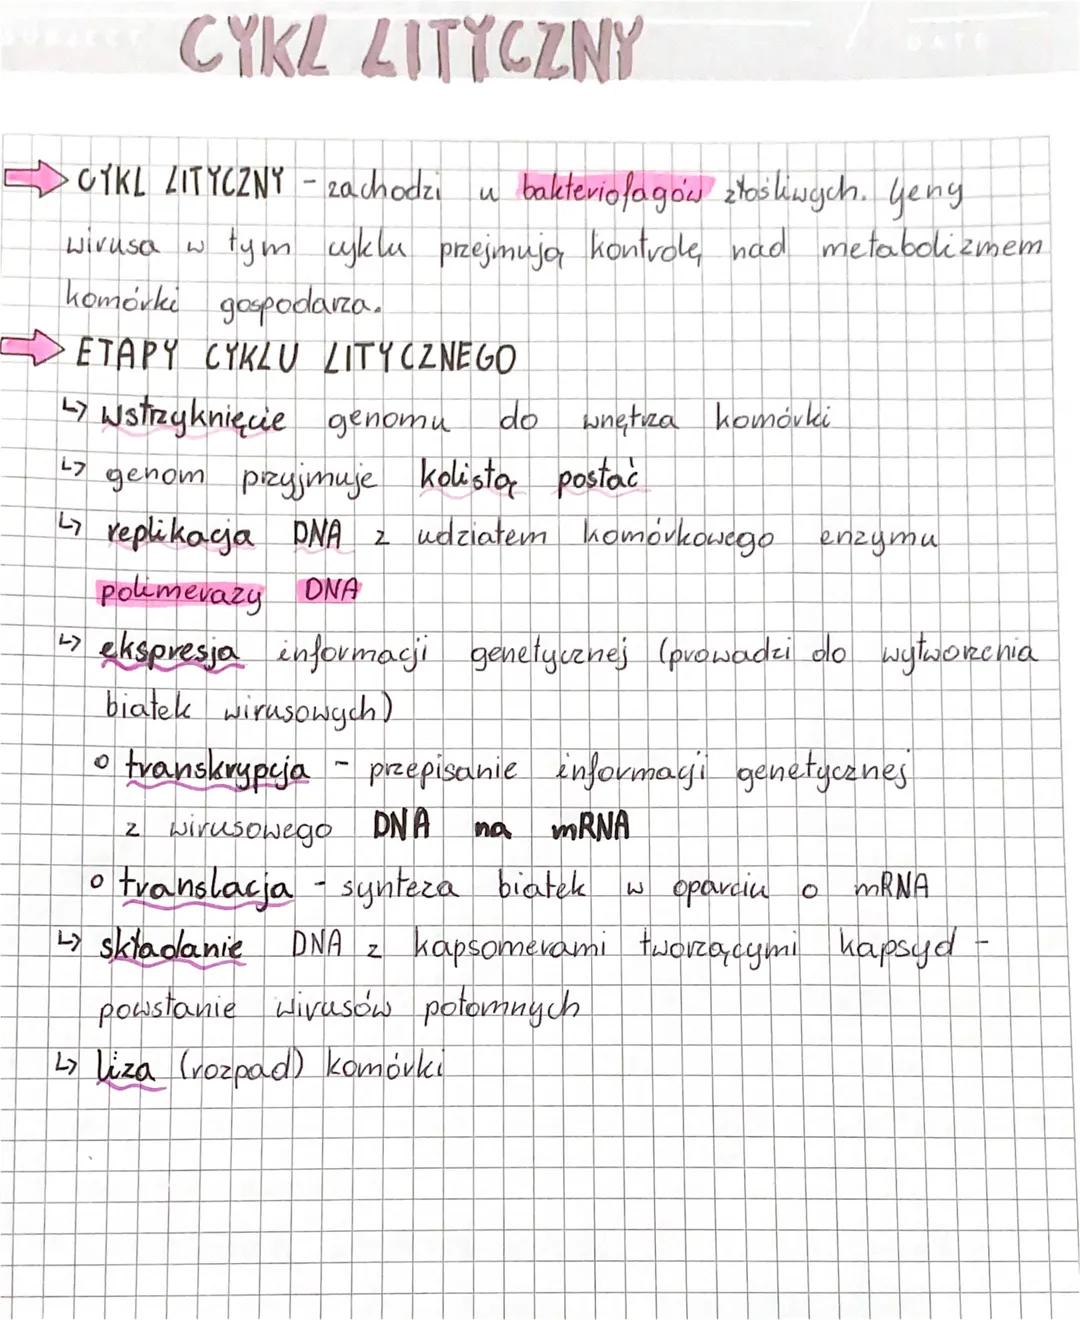 CYKL LITYCZNY
CYKL LITYCZNY - zachodzi u bakteriofagów złośliwych. Geny
wirusa w tym cyklu przejmują kontrolę nad metabolizmem
komórki gospodarza.
ETAPY CYKLU LITYCZNEGO
↳ wstrzyknięcie genomu do wnętrza komórki
↳ genom przyjmuje kolistą postać
↳ replikacja DNA z udziałem komórkowego enzymu
polimerazy DNA
↳ ekspresja informacji genetycznej (prowadzi do wytworzenia
białek wirusowych)
o transkrypcja - przepisanie informacji genetycznej
z wirusowego DNA na mRNA
o translacja - synteza białek w oparciu o mRNA
↳ składanie DNA z kapsomerami tworzącymi kapsyd -
powstanie wirusów potomnych
↳ liza (rozpad) komórki